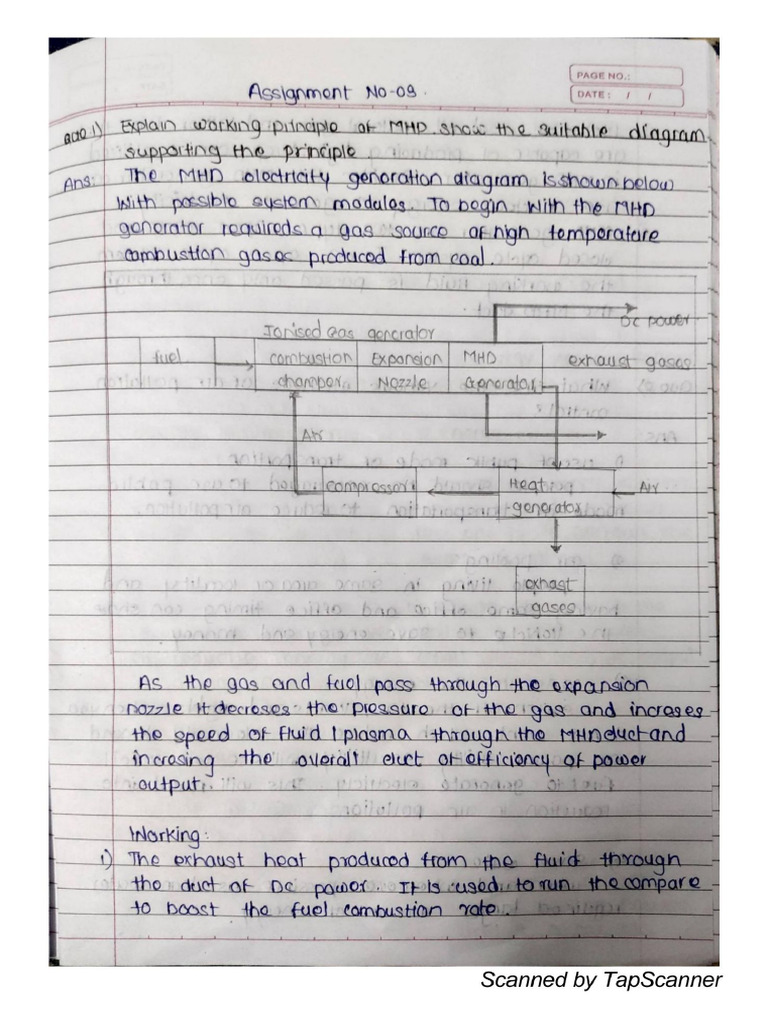 Assignment No-09.
PAGE NO.:
DATE: / /
Que 1) Explain working principle of MHD show the suitable diagram
supporting the principle
Ans: The MHD electricity generation diagram is shown below
With possible system modules. To begin with the MHD
generator requireds a gas source of high temperature
combustion gases produced from coal.
DC power
Ionised Gas generator
fuel combustion Expansion MHD exhaust gases
champer Nozzle Generator
Air
compressor Heat Air
generator
exhast
gases
As the gas and fuel pass through the expansion
nozzle it decreses the pressure of the gas and increses
the speed of fluid / plasma through the MHD duct and
incresing the overall duct of efficiency of power
output.
Working:
1) The exhaust heat produced from the fluid through
the duct of DC power. It is used to run the compare
to boost the fuel combustion rate.
Scanned by TapScanner